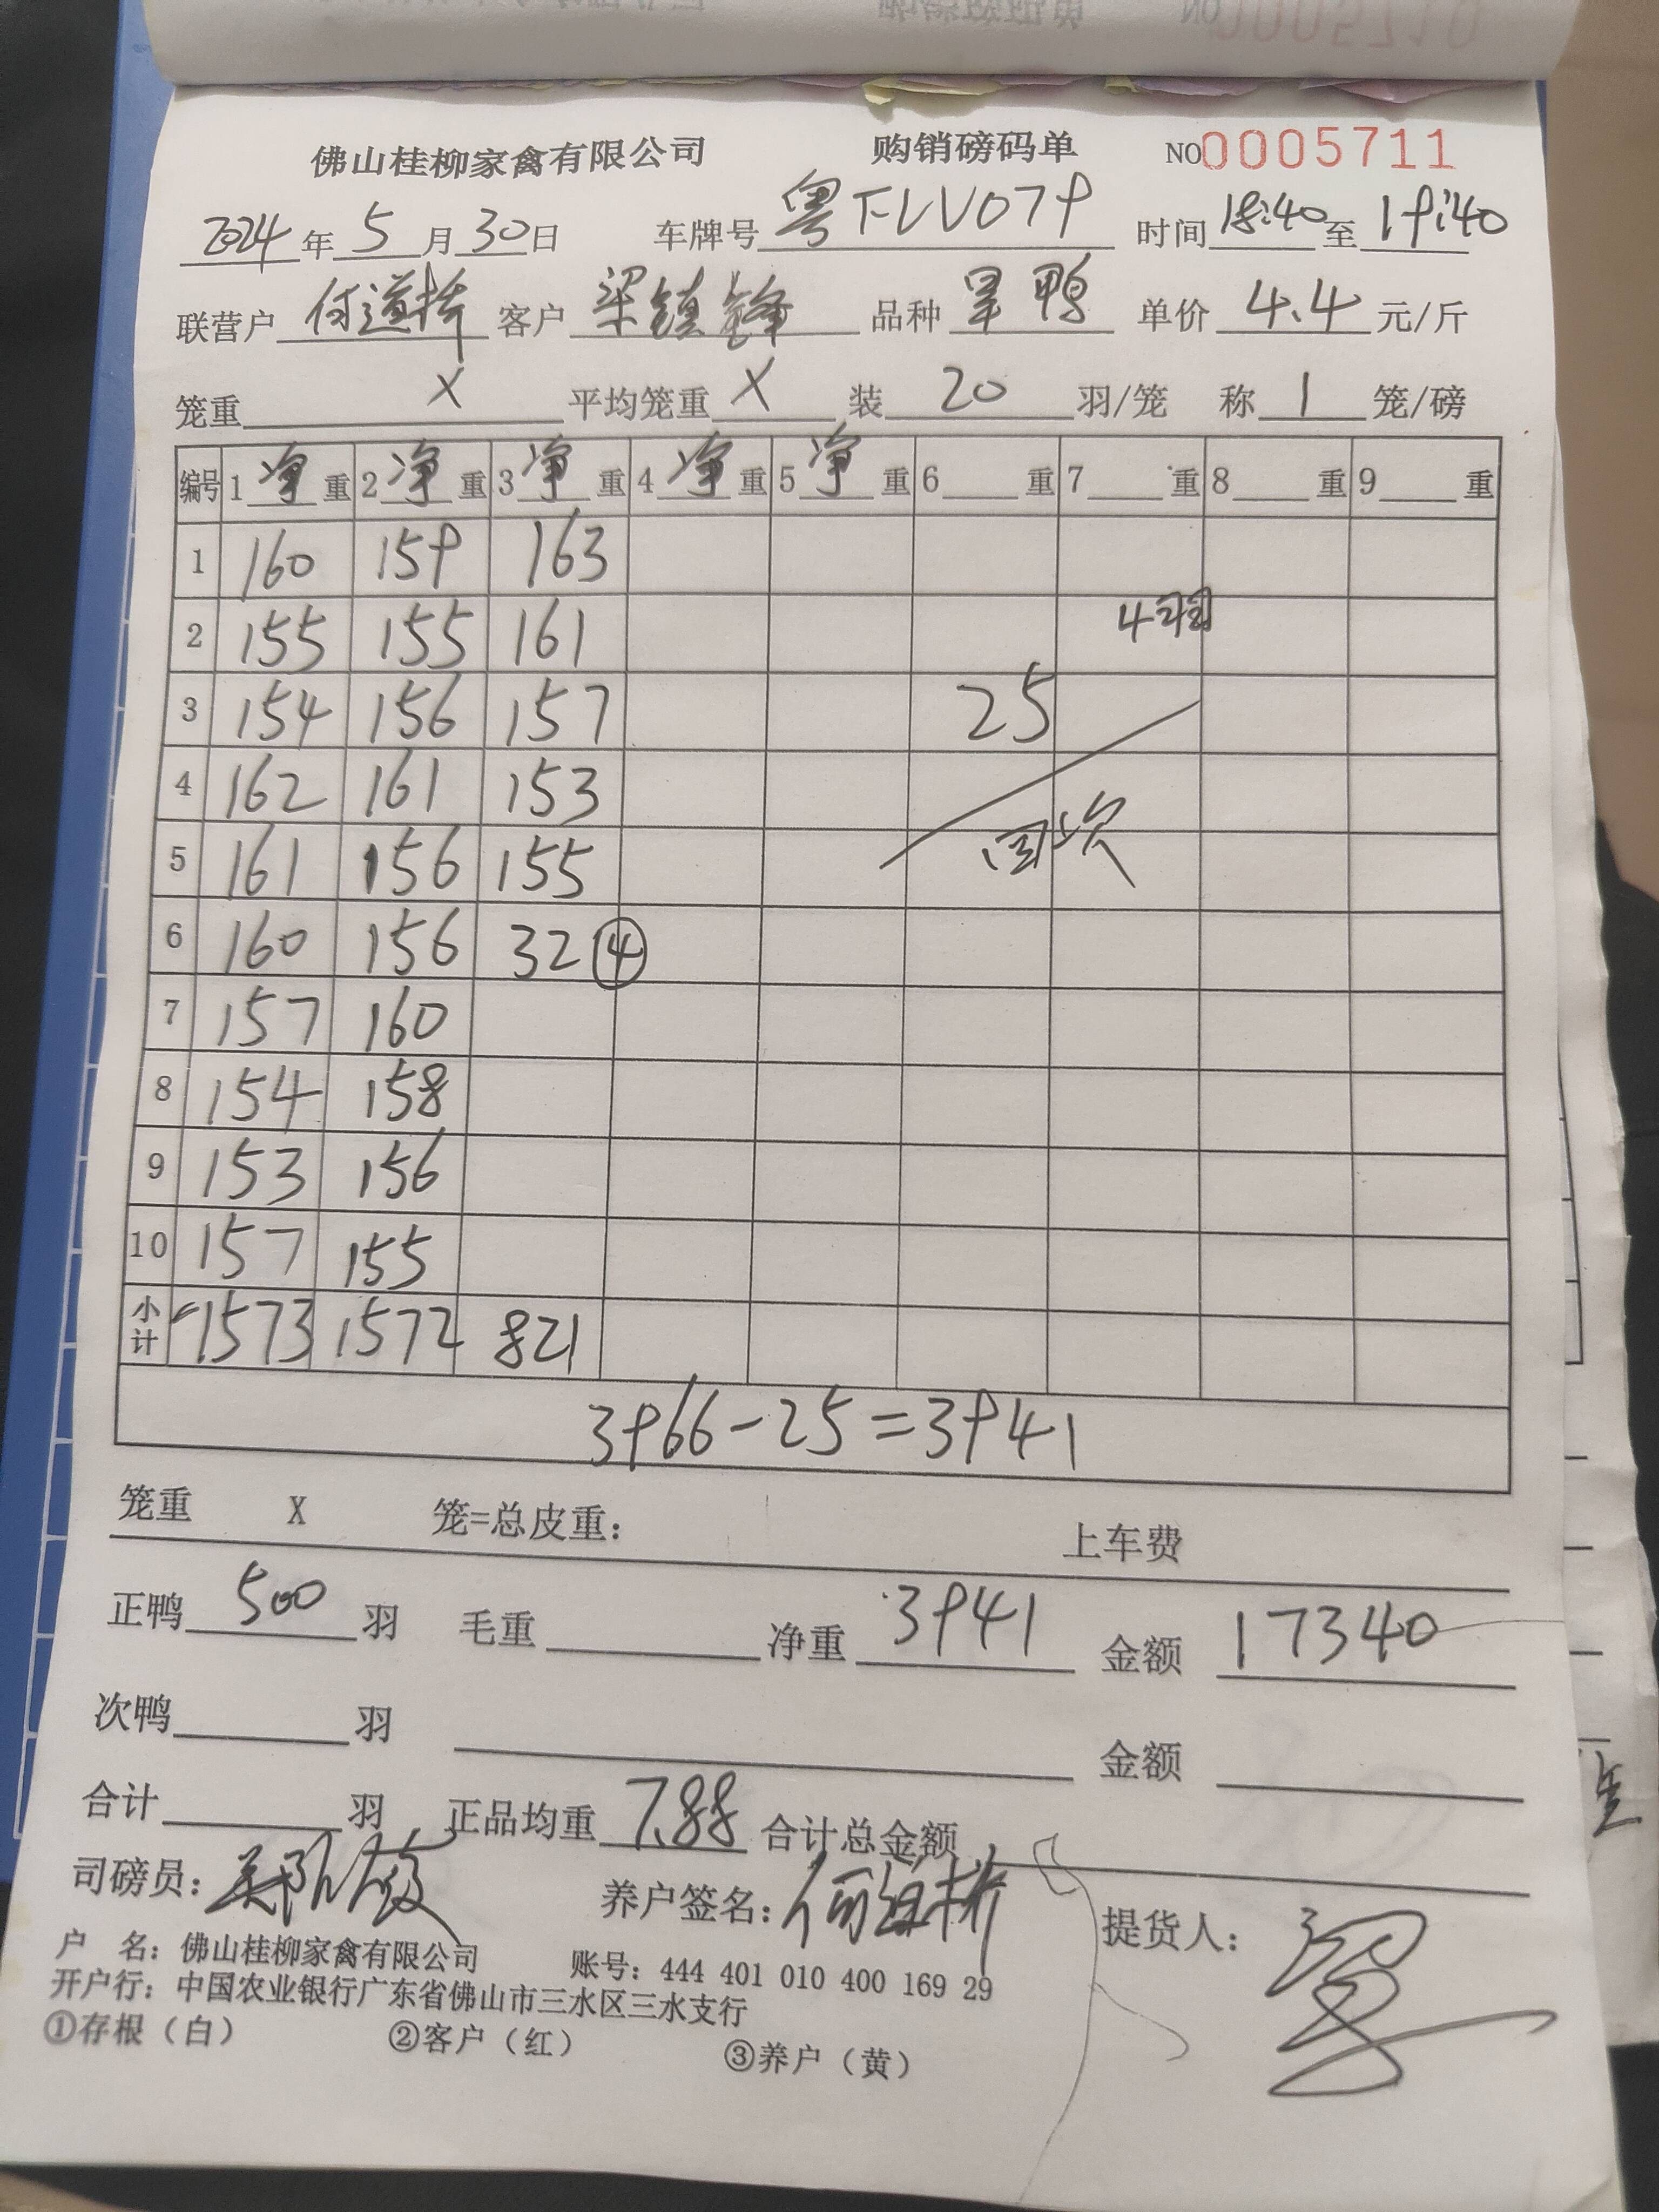 佛山桂柳家禽有限公司 购销磅码单 NO0005711
2024年5月30日 车牌号粤FLV079 时间18:40至19:40
联营户 何道桥 客户 梁镇锋 品种 旱鸭 单价 4.4 元/斤
笼重 X 平均笼重 X 装 20 羽/笼 称 1 笼/磅
编号 1净重 2净重 3净重 4净重 5净重 6重 7重 8重 9重
1 160 159 163
2 155 155 161 4羽
3 154 156 157 25
4 162 161 153
5 161 156 155 回次
6 160 156 32 ④
7 157 160
8 154 158
9 153 156
10 157 155
小计 1573 1572 821
3966-25=3941
笼重 X 笼=总皮重: 上车费
正鸭 500 羽 毛重 净重 3941 金额 17340
次鸭 羽 金额
合计 羽 正品均重 7.88 合计总金额
司磅员: 养户签名:何道桥 提货人: 梁
户 名: 佛山桂柳家禽有限公司 账号: 444 401 010 400 169 29
开户行: 中国农业银行广东省佛山市三水区三水支行
①存根（白） ②客户（红） ③养户（黄）